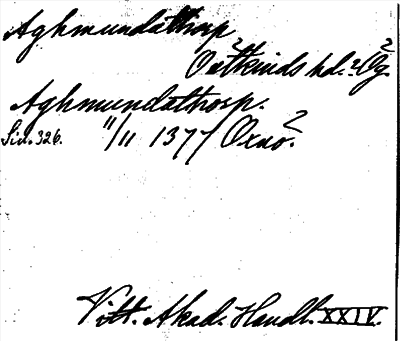 Aghmundathorp
Östkinds hd.? Ög.?
Aghmundathorp.
Sid. 326. 11/11 1377 Oxnö.?
Vitt. Akad. Handl. XXIV.